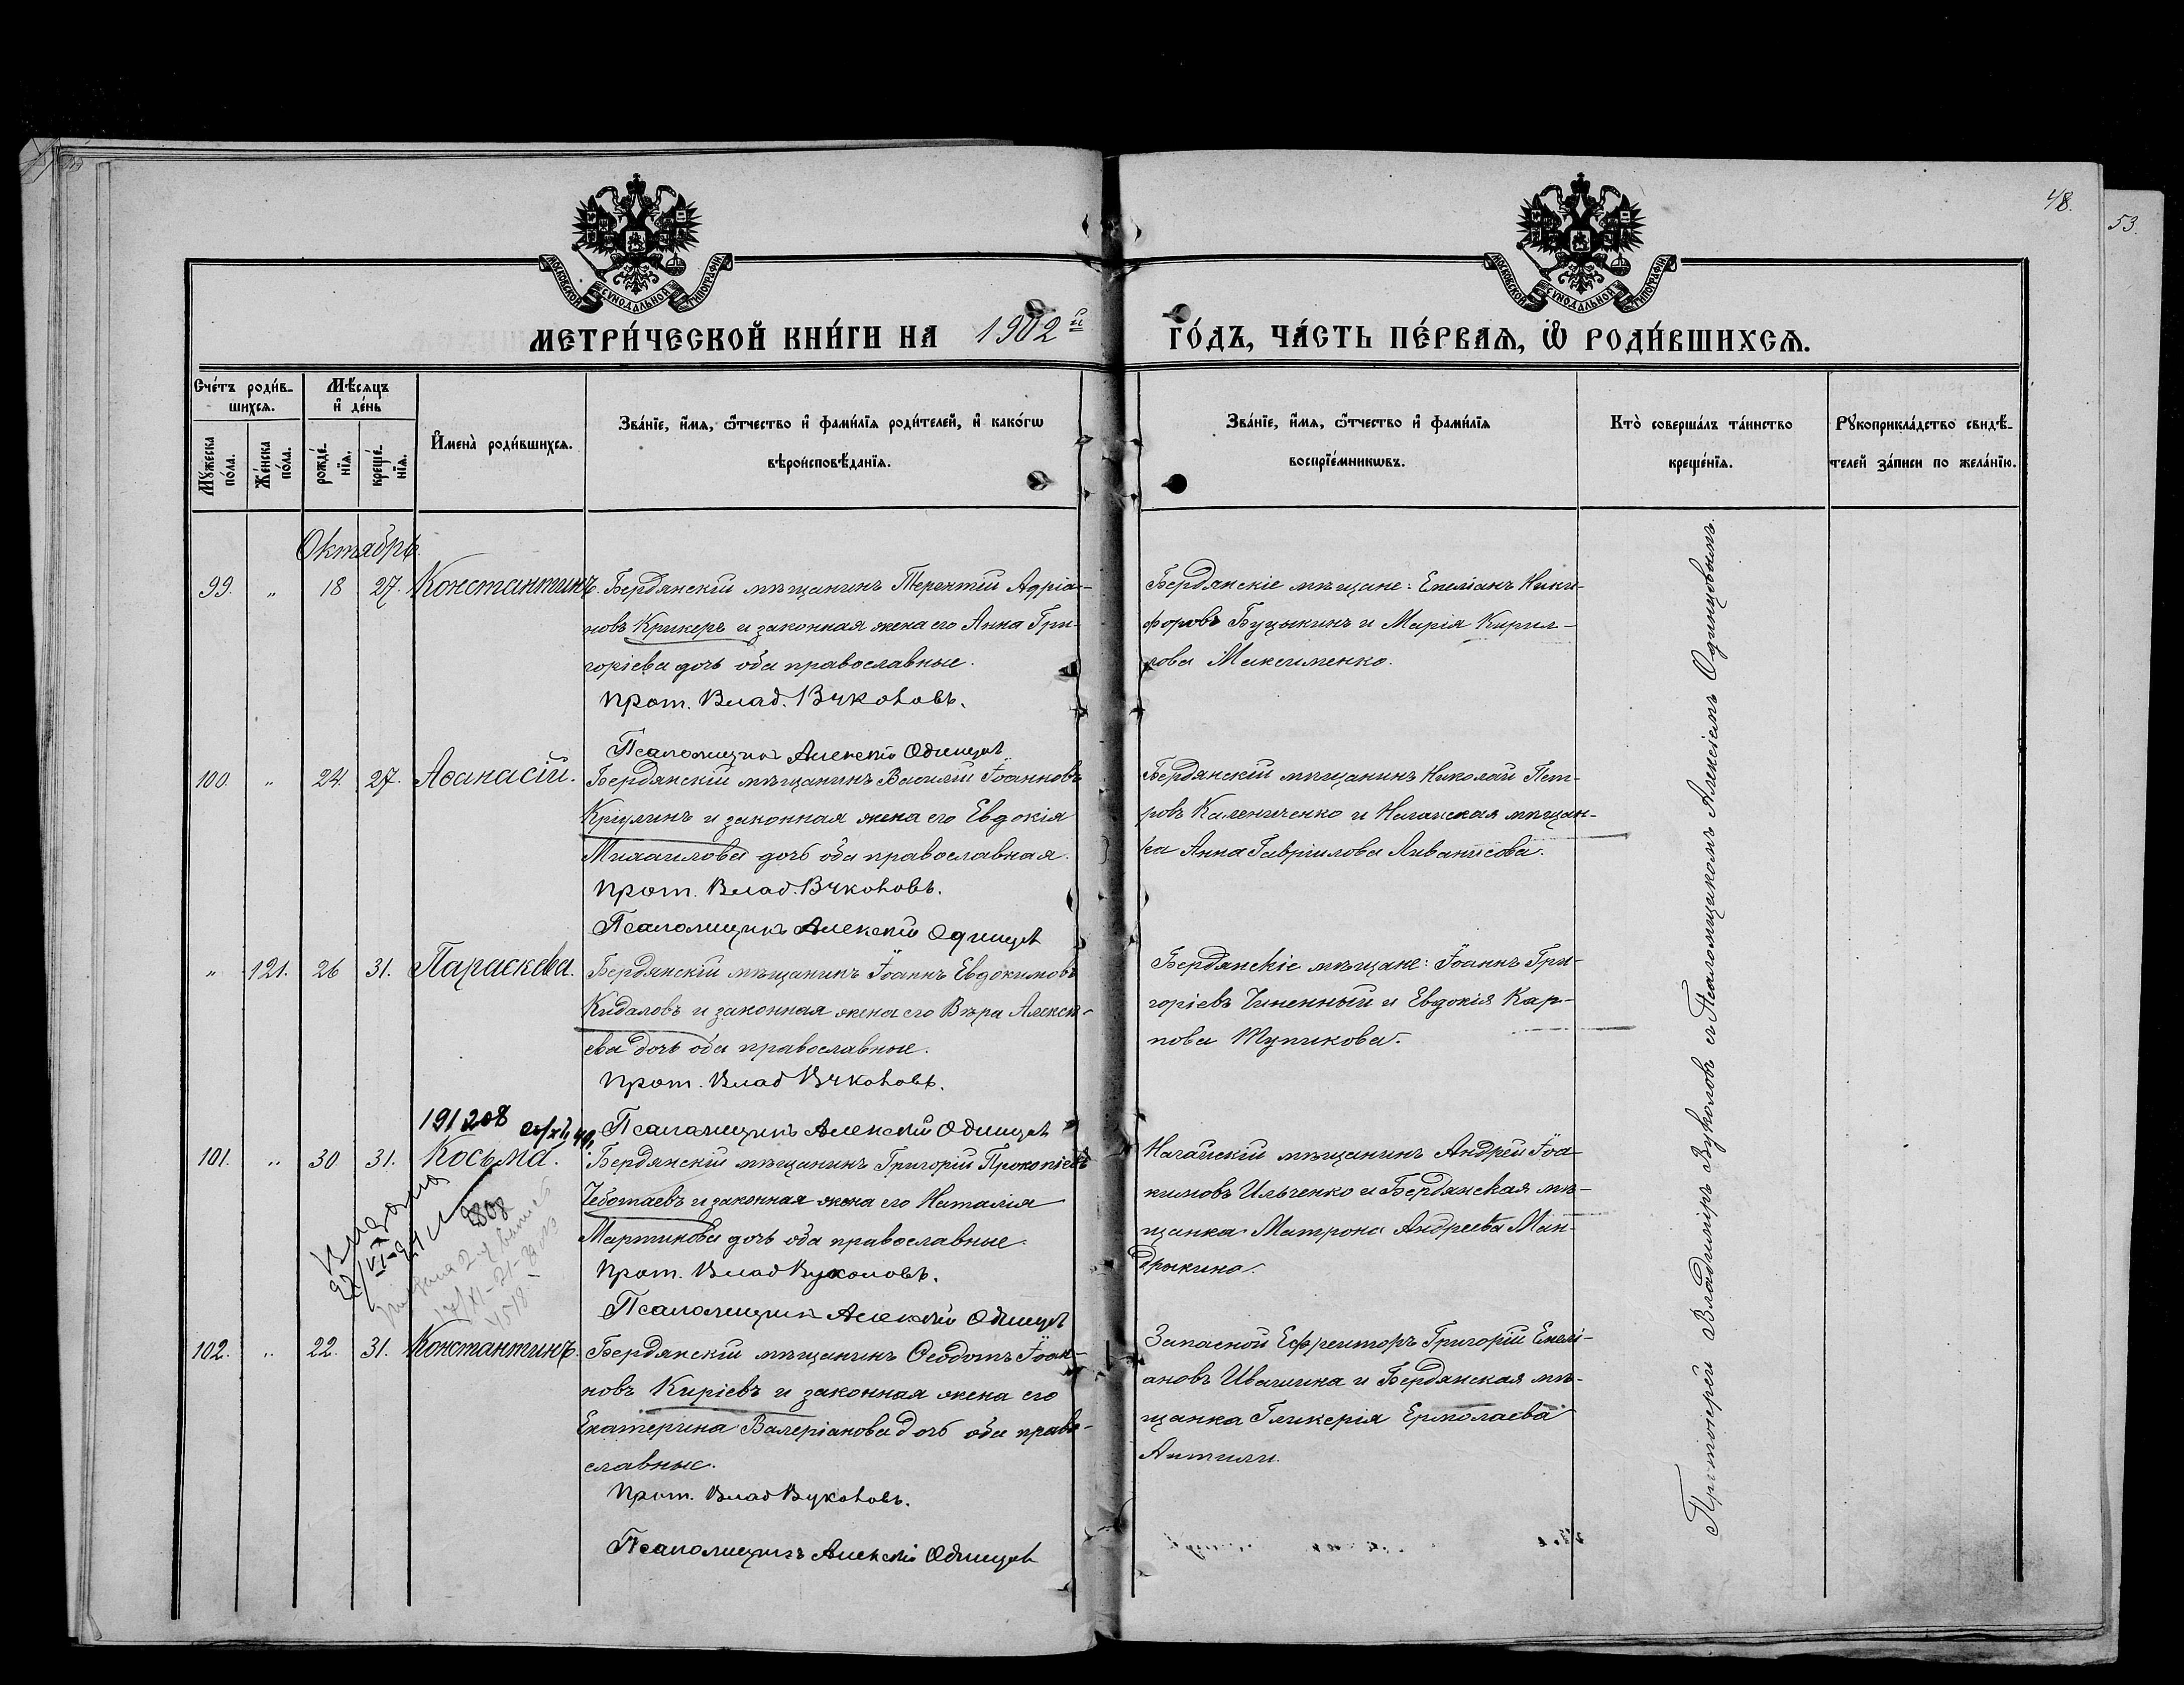 48.
53.
МОСКОВСКОЙ СУНОДАЛЬНОЙ ТИПОГРАФІИ
МОСКОВСКОЙ СУНОДАЛЬНОЙ ТИПОГРАФІИ
МЕТРИ́ЧЕСКОЙ КНИ́ГИ НА 1902й ГО́ДЪ, ЧА́СТЬ ПЕ́РВАѦ, Ѽ РОДИ́ВШИХСѦ.
Сче́тъ роди́в-
шихсѧ.
Мѣ́сѧцъ
и҆ де́нь
Мꙋ́жеска
по́ла.
Же́нска
по́ла.
рожде́-
нїѧ.
креще́-
нїѧ.
И҆мена̀ роди́вшихсѧ.
Зва́нїе, и҆́мѧ, ѻ҆́тчество и҆ фами́лїѧ роди́телей, и҆ како́гѡ
вѣроисповѣ́данїѧ.
Зва́нїе, и҆́мѧ, ѻ҆́тчество и҆ фами́лїѧ
воспрїе́мникѡвъ.
Кто̀ соверша́лъ та́инство
креще́нїѧ.
Рꙋкоприкла́дство свидѣ́-
телей за́писи по жела́нїю.
Октябрь.
99. " 18 27. Константинъ. Бердянскій мѣщанинъ Терентій Адріа-
новъ Крикеръ и законная жена его Анна Гри-
горіева дочь оба православные.
Прот. Влад. Вуколовъ.
Псаломщикъ Алексій Одинцовъ
Бердянскіе мѣщане: Емеліанъ Ники-
форовъ Буцыкинъ и Марія Кирил-
лова Максименко.
100. " 24. 27. Аѳанасій. Бердянскій мѣщанинъ Василій Іоанновъ
Кріулинъ и законная жена его Евдокія
Михаилова дочь оба православная.
Прот. Влад. Вуколовъ.
Псаломщикъ Алексій Одинцовъ
Бердянскій мѣщанинъ Николай Пет-
ровъ Каленченко и Ногайская мѣщан-
ка Анна Гавріилова Аиванисова.
" 121. 26 31. Параскева. Бердянскій мѣщанинъ Іоаннъ Евдокимовъ
Кидаловъ и законная жена его Вѣра Алексѣ-
ева дочь оба православные.
Прот. Влад Вуколовъ.
Псаломщикъ Алексій Одинцовъ
Бердянскіе мѣщане: Іоаннъ Гри-
горіевъ Чиненный и Евдокія Кар-
пова Тупикова.
191208
101. " 30. 31. Косьма. Бердянскій мѣщанинъ Григорій Прокопіевъ
Чеботаевъ и законная жена его Наталія
Мартинова дочь оба православные.
Прот. Влад Вуколовъ.
Псаломщикъ Алексій Одинцовъ
Ногайскій мѣщанинъ Андрей Іоа-
кимовъ Ильченко и Бердянская мѣ-
щанка Матрона Андреева Ман-
дрыкина.
808
102. " 22. 31. Константинъ. Бердянскій мѣщанинъ Ѳеодотъ Іоан-
новъ Киріевъ и законная жена его
Екатерина Валеріанова дочь оба право-
славные.
Прот. Влад Вуколовъ.
Псаломщикъ Алексій Одинцовъ
Запасной Ефрейторъ Григорій Емелі-
ановъ Ивашина и Бердянская мѣ-
щанка Гликерія Ермолаева
Протоіерей Владиміръ Вуколовъ съ Псаломщикомъ Алексіемъ Одинцовымъ.